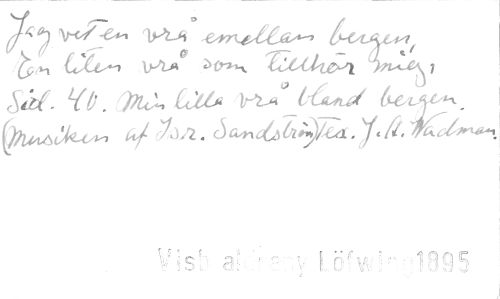 Jag vet en vrå emellan bergen,
En liten vrå som tillhör mig,
Sid. 40. Min lilla vrå bland bergen.
(Musiken af Isr. Sandström) Tex. J. A. Wadman.
Visb Löfwing 1895